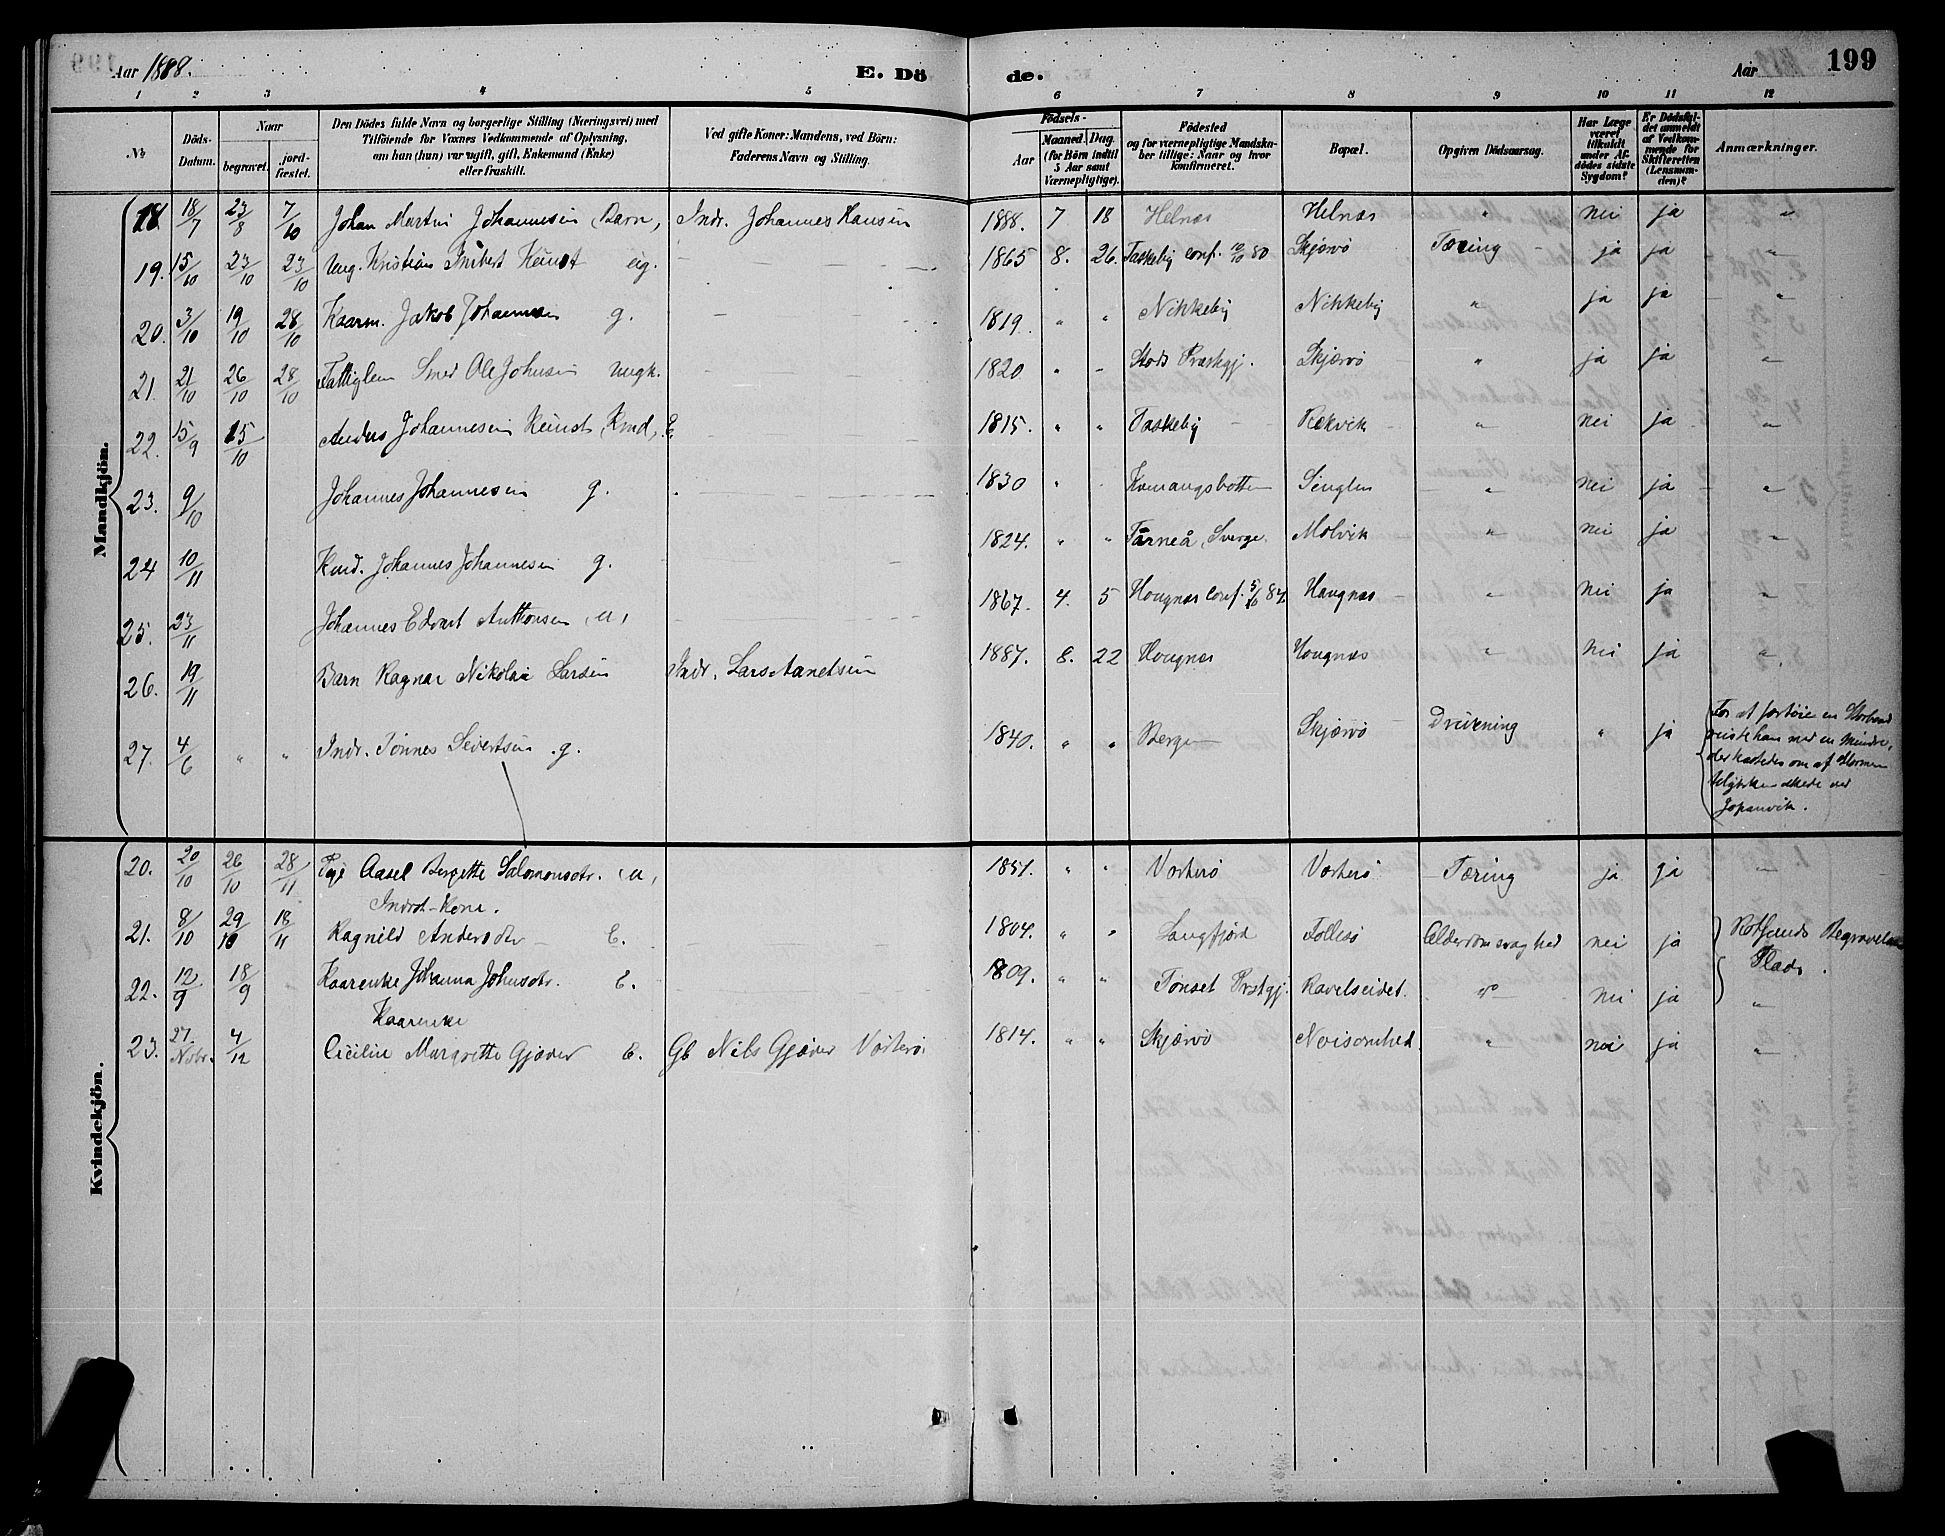 Aar 1888.
E. Dö
de.
Aar
199
1 2 3 4 5 6 7 8 9 10 11 12
No
Döds-Datum.
Naar
begravet.
jord-fæstet.
Den Dödes fulde Navn og borgerlige Stilling (Næringsvei) med Tilföiende for Voxnes Vedkommende af Oplysning, om han (hun) var ugift, gift, Enkemand (Enke) eller fraskilt.
Ved gifte Koner: Mandens, ved Börn: Faderens Navn og Stilling.
Födsels-
Aar
Maaned. Dag.
(for Börn indtil 5 Aar samt Værnepligtige).
Födested og for værnepligtige Mandskaber tillige: Naar og hvor konfirmeret.
Bopæl.
Opgiven Dödsaarsag.
Har Læge været tilkaldt under Afdödes sidste Sygdom?
Er Dödsfaldet anmeldt af Vedkommende for Skifteretten (Lensmanden)?
Anmærkninger.
Mandkjön.
18 18/7 23/8 7/10 Johan Martin Johannesen (Barn, Indr. Johannes Hansen 1888. 7 18 Helnæs Helnæs " nei ja "
19. 15/10 23/10 23/10 Ung. Kristian Kunst ug. 1865 8. 26. Taskeby conf. 12/10 80 Skjærvö Tæring ja ja "
20. 3/10 19/10 28/10 Kaarm. Jakob Johannesen g. 1819. " " Nikkeby Nikkeby " ja ja "
21. 21/10 26/10 28/10 Fattiglem Smed Ole Johnsen ungk. 1820 " " Stods Præstgj. Skjærvö " ja ja "
22. 15/9 15/10 Anders Johannesen Kunst, Kmd, E. 1815. " " Taskeby Rekvik " nei ja "
23. 9/10 Johannes Johannesen g. 1830 " Kvænangsbotten Senglen " nei ja "
24 10/11 Kmd. Johannes Johannesen g. 1824. " " Tärneå, Sverge. Molvik " nei ja "
25. 23/11 Johannes Edvart Anthonsen, u, 1867. 4. 5 Hougnæs conf. 5/10 84. Haugnæs " nei ja "
26. 19/11 Barn Ragnar Nikolai Larsen Indr. Lars Anetsen 1887. 8. 22 Hougnæs Hougnæs " nei ja "
27. 4/6 " " Indr. Tönnes Sivertsen g. 1840. " " Bergen Skjærvö Drukning " ja
For at fortöie en Storbaad
reiste han med en mindre,
der kastedes om af Stormen
Ulykken skede ved
Jopanvik.
Kvindekjön.
20. 20/10 26/10 28/11 Pige Aasel Bergette Salomonsdtr. u, 1851. " " Vorterö Vorterö Tæring ja ja "
Indrst-Kone.
21. 8/10 29/10 18/11 Ragnild Andersdtr E. 1804. " " Langfjord Follesö Alderdomssvaghed nei ja
Rotsunds Begravelses
Plads.
22. 12/9 18/9 " Kaarenke Johanna Johnsdtr. E. 1809. " " Tönset Prstgj. Ravelseidet. do nei ja "
Kaarenke
23. 27. Novbr. 4/12 Cicilie Margrette Gjæver E. Gb Nils Gjæver Vorterö. 1814. " " Skjærvö Noisomhed " nei ja "